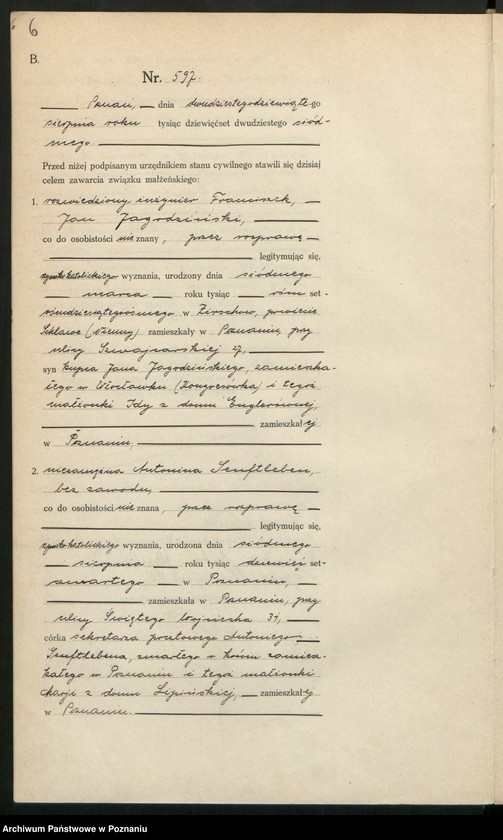 6
B.
Nr. 597.
Poznań, dnia dwudziestegodziewiąte-go
sierpnia roku tysiąc dziewięćset dwudziestego siód-
mego
Przed niżej podpisanym urzędnikiem stanu cywilnego stawili się dzisiaj
celem zawarcia związku małżeńskiego:
1. rozwiedziony inżynier Franciszek,
Jan Jagodziński,
co do osobistości nie znany, przez rozprawę
legitymując się,
rzymskokatolickiego wyznania, urodzony dnia siódmego
marca roku tysiąc ośm set-
ośmdziesiątegoósmego w Zirschow, powiecie
(Niemcy) zamieszkały w Poznaniu, przy
ulicy Szwajcarskiej 27,
syn kupca Jana Jagodzińskiego, zamieszka-
łego w Włocławku (Kongresówka) i tegoż
małżonki Idy z domu Englerównej,
zamieszkałej
w Poznaniu,
2. niezamężna Antonina Senftleben,
bez zawodu,
co do osobistości nie znana, przez rozprawę
legitymując się,
rzymskokatolickiego wyznania, urodzona dnia siódmego
sierpnia roku tysiąc dziewięć set-
czwartego w Poznaniu,
zamieszkała w Poznaniu, przy
ulicy Świętego Wojciecha 31,
córka sekretarza pocztowego Antoniego
Senftlebena, zmarłego a zamiesz-
kałego w Poznaniu i tegoż małżonki
Marji z domu Lipińskiej, zamieszkałej
w Poznaniu.
Archiwum Państwowe w Poznaniu